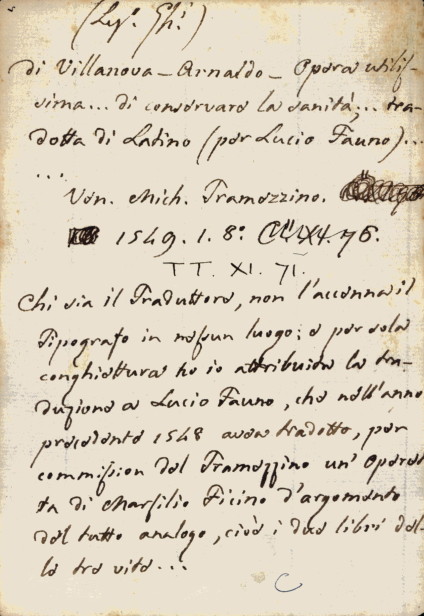 (Leg. Gh.)
di Villanova - Arnaldo - Opera utilis-
sima... di conservare la sanità;... tra-
dotta di Latino (per Lucio Fauno)...
...
Ven. Mich. Tramezzino.
1549. 1. 8.° 76.
TT. XI. 71.
Chi sia il Traduttore, non l'accenna il
Tipografo in nessun luogo; e per sola
conghiettura ho io attribuita la tra-
duzione a Lucio Fauno, che nell'anno
precedente 1548 avea tradotto, per
commission del Tramezzino un' Operet
ta di Marsilio Ficino d'argomento
del tutto analogo, cioè i due libri del-
le tre vite...